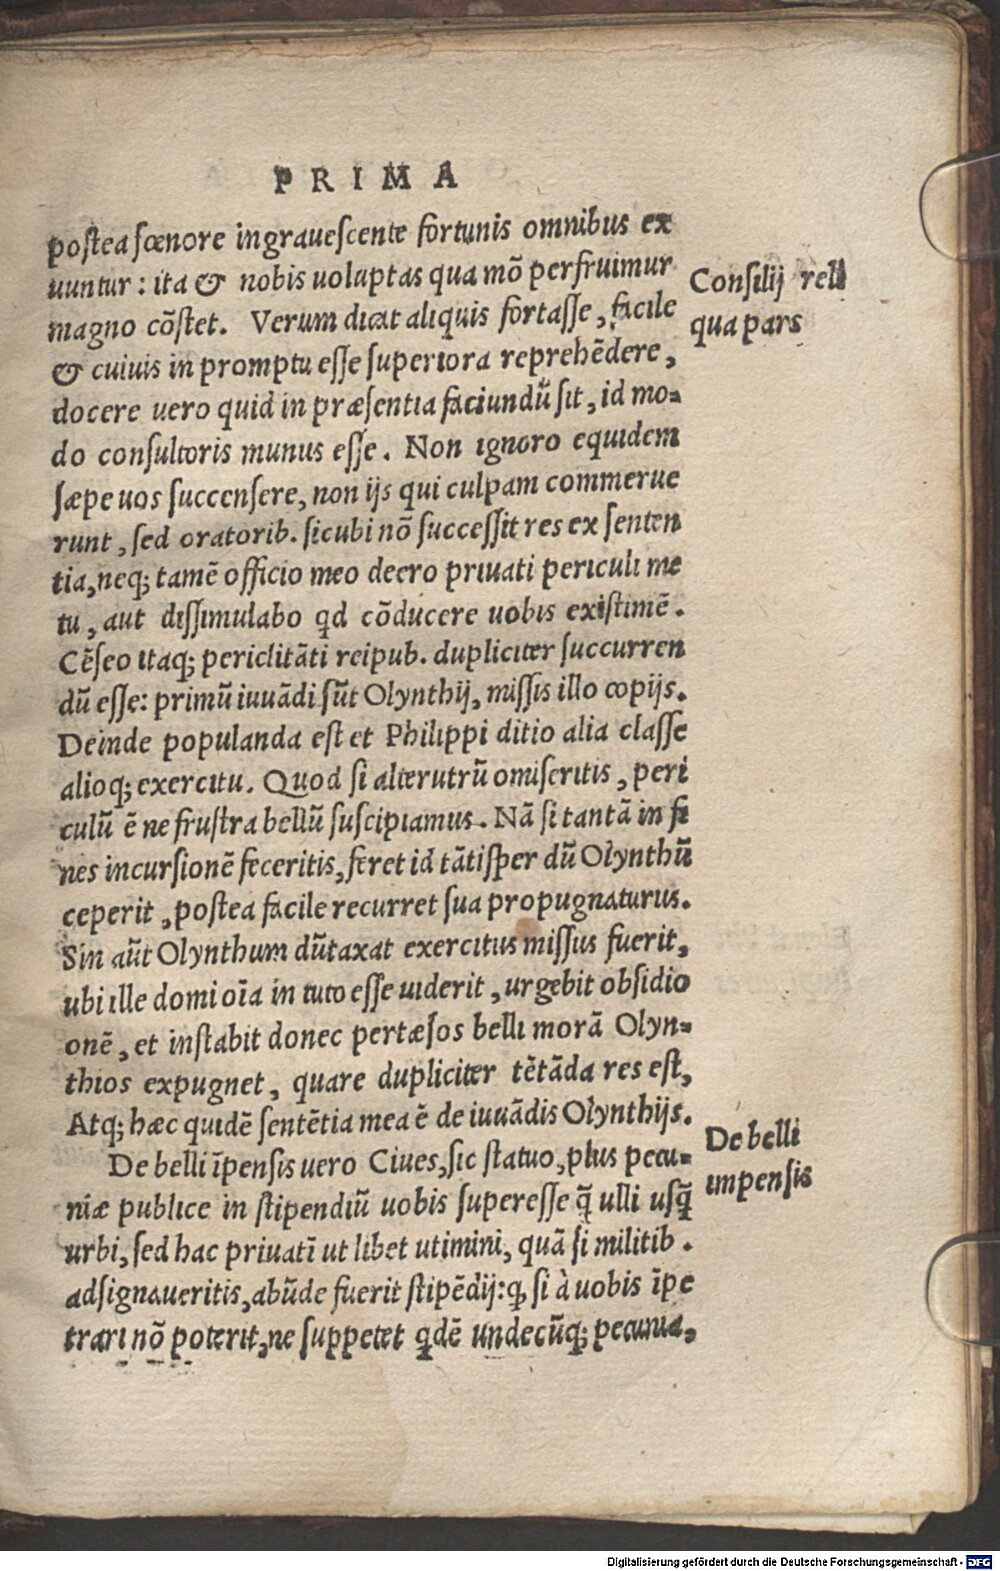 PRIMA
postea fœnore ingrauescente fortunis omnibus ex
uuntur: ita & nobis uoluptas qua mõ perfruimur
magno cõstet. Verum dicat aliquis fortasse, facile
& cuiuis in promptu esse superiora reprehẽdere,
docere uero quid in præsentia faciundũ sit, id mo=
do consultoris munus esse. Non ignoro equidem
sæpe uos succensere, non ijs qui culpam commerue
runt, sed oratorib. sicubi nõ successit res ex senten
tia, neq; tamẽ officio meo deero priuati periculi me
tu, aut dissimulabo qd cõducere uobis existimẽ.
Cẽseo itaq; periclitãti reipub. dupliciter succurren
dũ esse: primũ iuuãdi sũt Olynthij, missis illo copijs.
Deinde populanda est et Philippi ditio alia classe
alioq; exercitu. Quod si alterutrũ omiseritis, peri
culũ ẽ ne frustra bellũ suscipiamus. Nã si tantã in fi
nes incursionẽ feceritis, feret id tãtisper dũ Olynthũ
ceperit, postea facile recurret sua propugnaturus.
Sin aũt Olynthum dũtaxat exercitus missus fuerit,
ubi ille domi oĩa in tuto esse uiderit, urgebit obsidio
onẽ, et instabit donec pertæsos belli morã Olyn=
thios expugnet, quare dupliciter tẽtãda res est,
Atq; hæc quidẽ sentẽtia mea ẽ de iuuãdis Olynthijs.
De belli ĩpensis uero Ciues, sic statuo, plus pecu=
niæ publice in stipendiũ uobis superesse q̃ ulli usq̃
urbi, sed hac priuatĩ ut libet utimini, quã si militib.
adsignaueritis, abũde fuerit stipẽdij: q, si à uobis ĩpe
trari nõ poterit, ne suppetet qdẽ undecũq; pecunia,
Consilij reli
qua pars
De belli
impensis
Digitalisierung gefördert durch die Deutsche Forschungsgemeinschaft - DFG